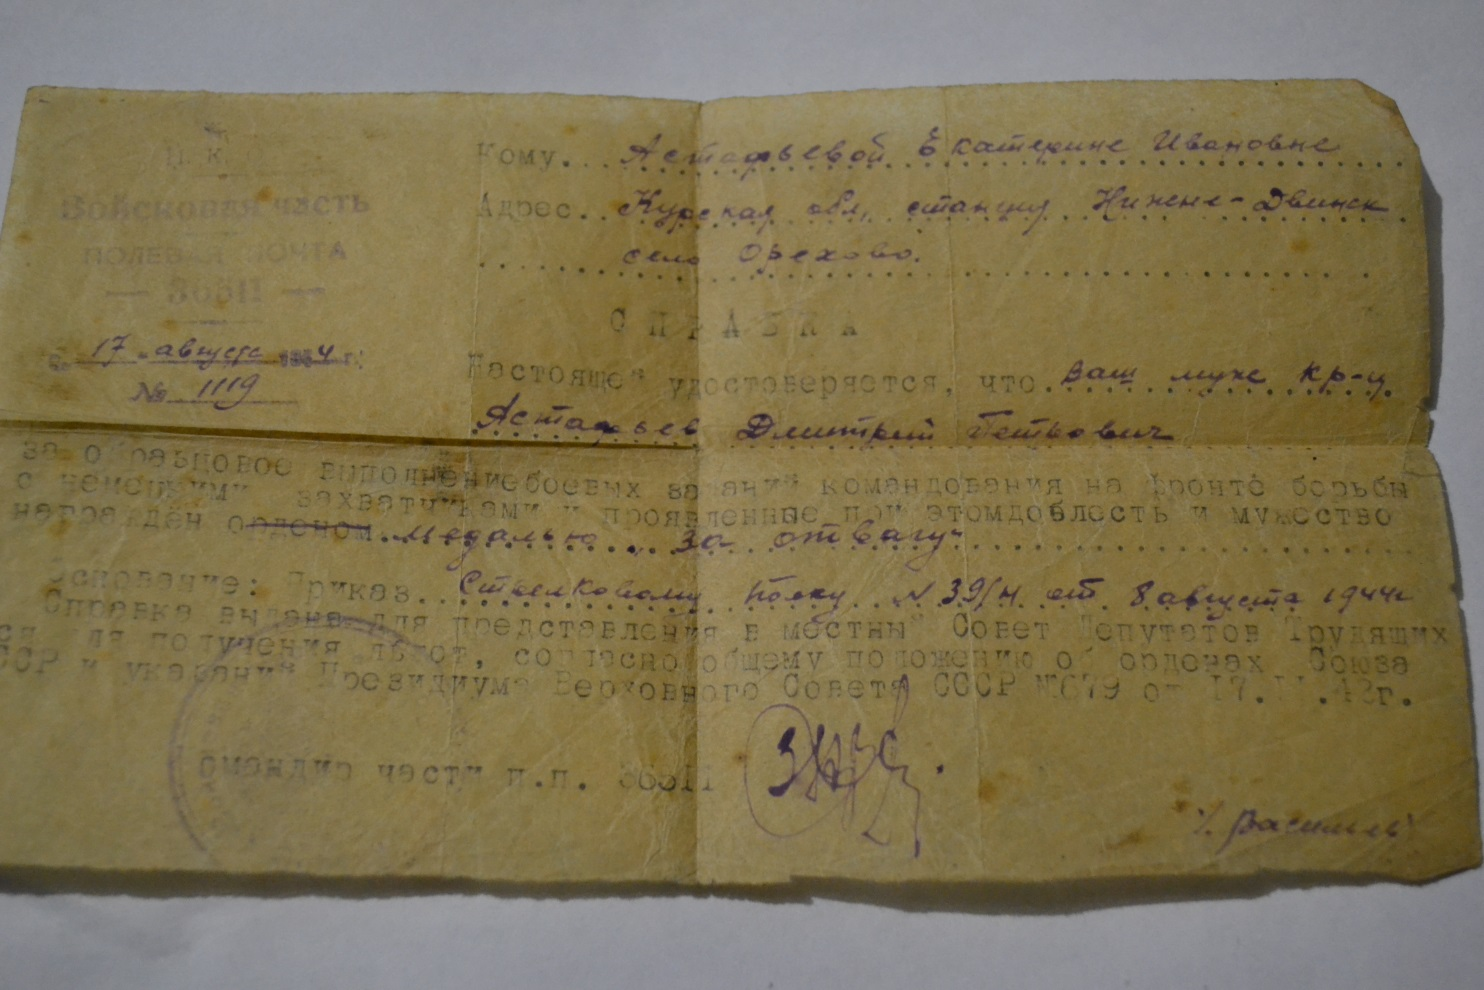 Н. К.
Войсковая часть
ПОЛЕВАЯ ПОЧТА
— 36311 —
17 августа 1944 г.
№ 1119
Кому... Астафьевой Екатерине Ивановне
Адрес.. Курская обл, станция Нижне-Двинск
село Орехово.
СПРАВКА
Настоящей удостоверяется, что.. ваш муж кр-ц
Астафьев Дмитрий Петрович
за образцовое выполнениебоевых заданий командования на фронте борьбы
с немецкими захватчиками и проявленные при этомдоблесть и мужество
награжден орденом..медалью „За отвагу"
Основание: Приказ.. Стрелковому Полку № 39/н от 8 августа 1944г
Справка выдана для представления в местный Совет Депутатов Трудящих
ся для получения льгот, согласно общему положению об орденах Союза
ССР и указаний Президиума Верховного Совета СССР №679 от 17. .42г.
омандир части п.п. 36311
/. Васильев/